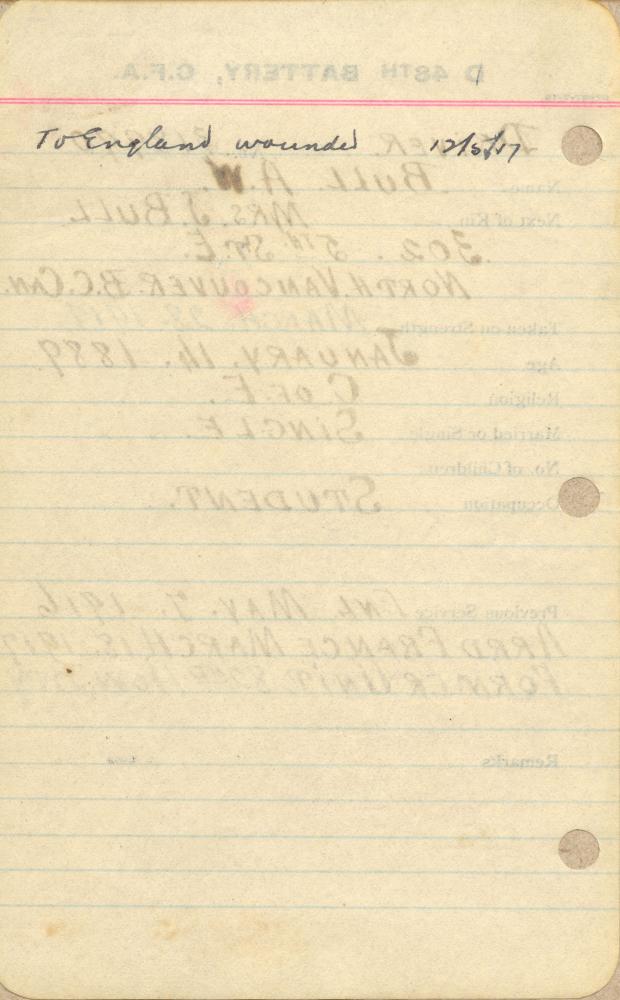 D 48TH BATTERY, C.F.A.
To England wounded 12/5/17
Name BULL. A.W.
Next of Kin MRS. J. BULL
302. 5TH ST. E.
NORTH. VANCOUVER. B.C. CAN.
Taken on Strength MARCH
Age JANUARY. 14. 1889
Religion C OF E.
Married or Single SINGLE.
No. of Children
Occupation STUDENT.
Previous Service ENL. MAY. 7. 1916
ARRD FRANCE MARCH 18. 1917
FORMER UNIT
Remarks